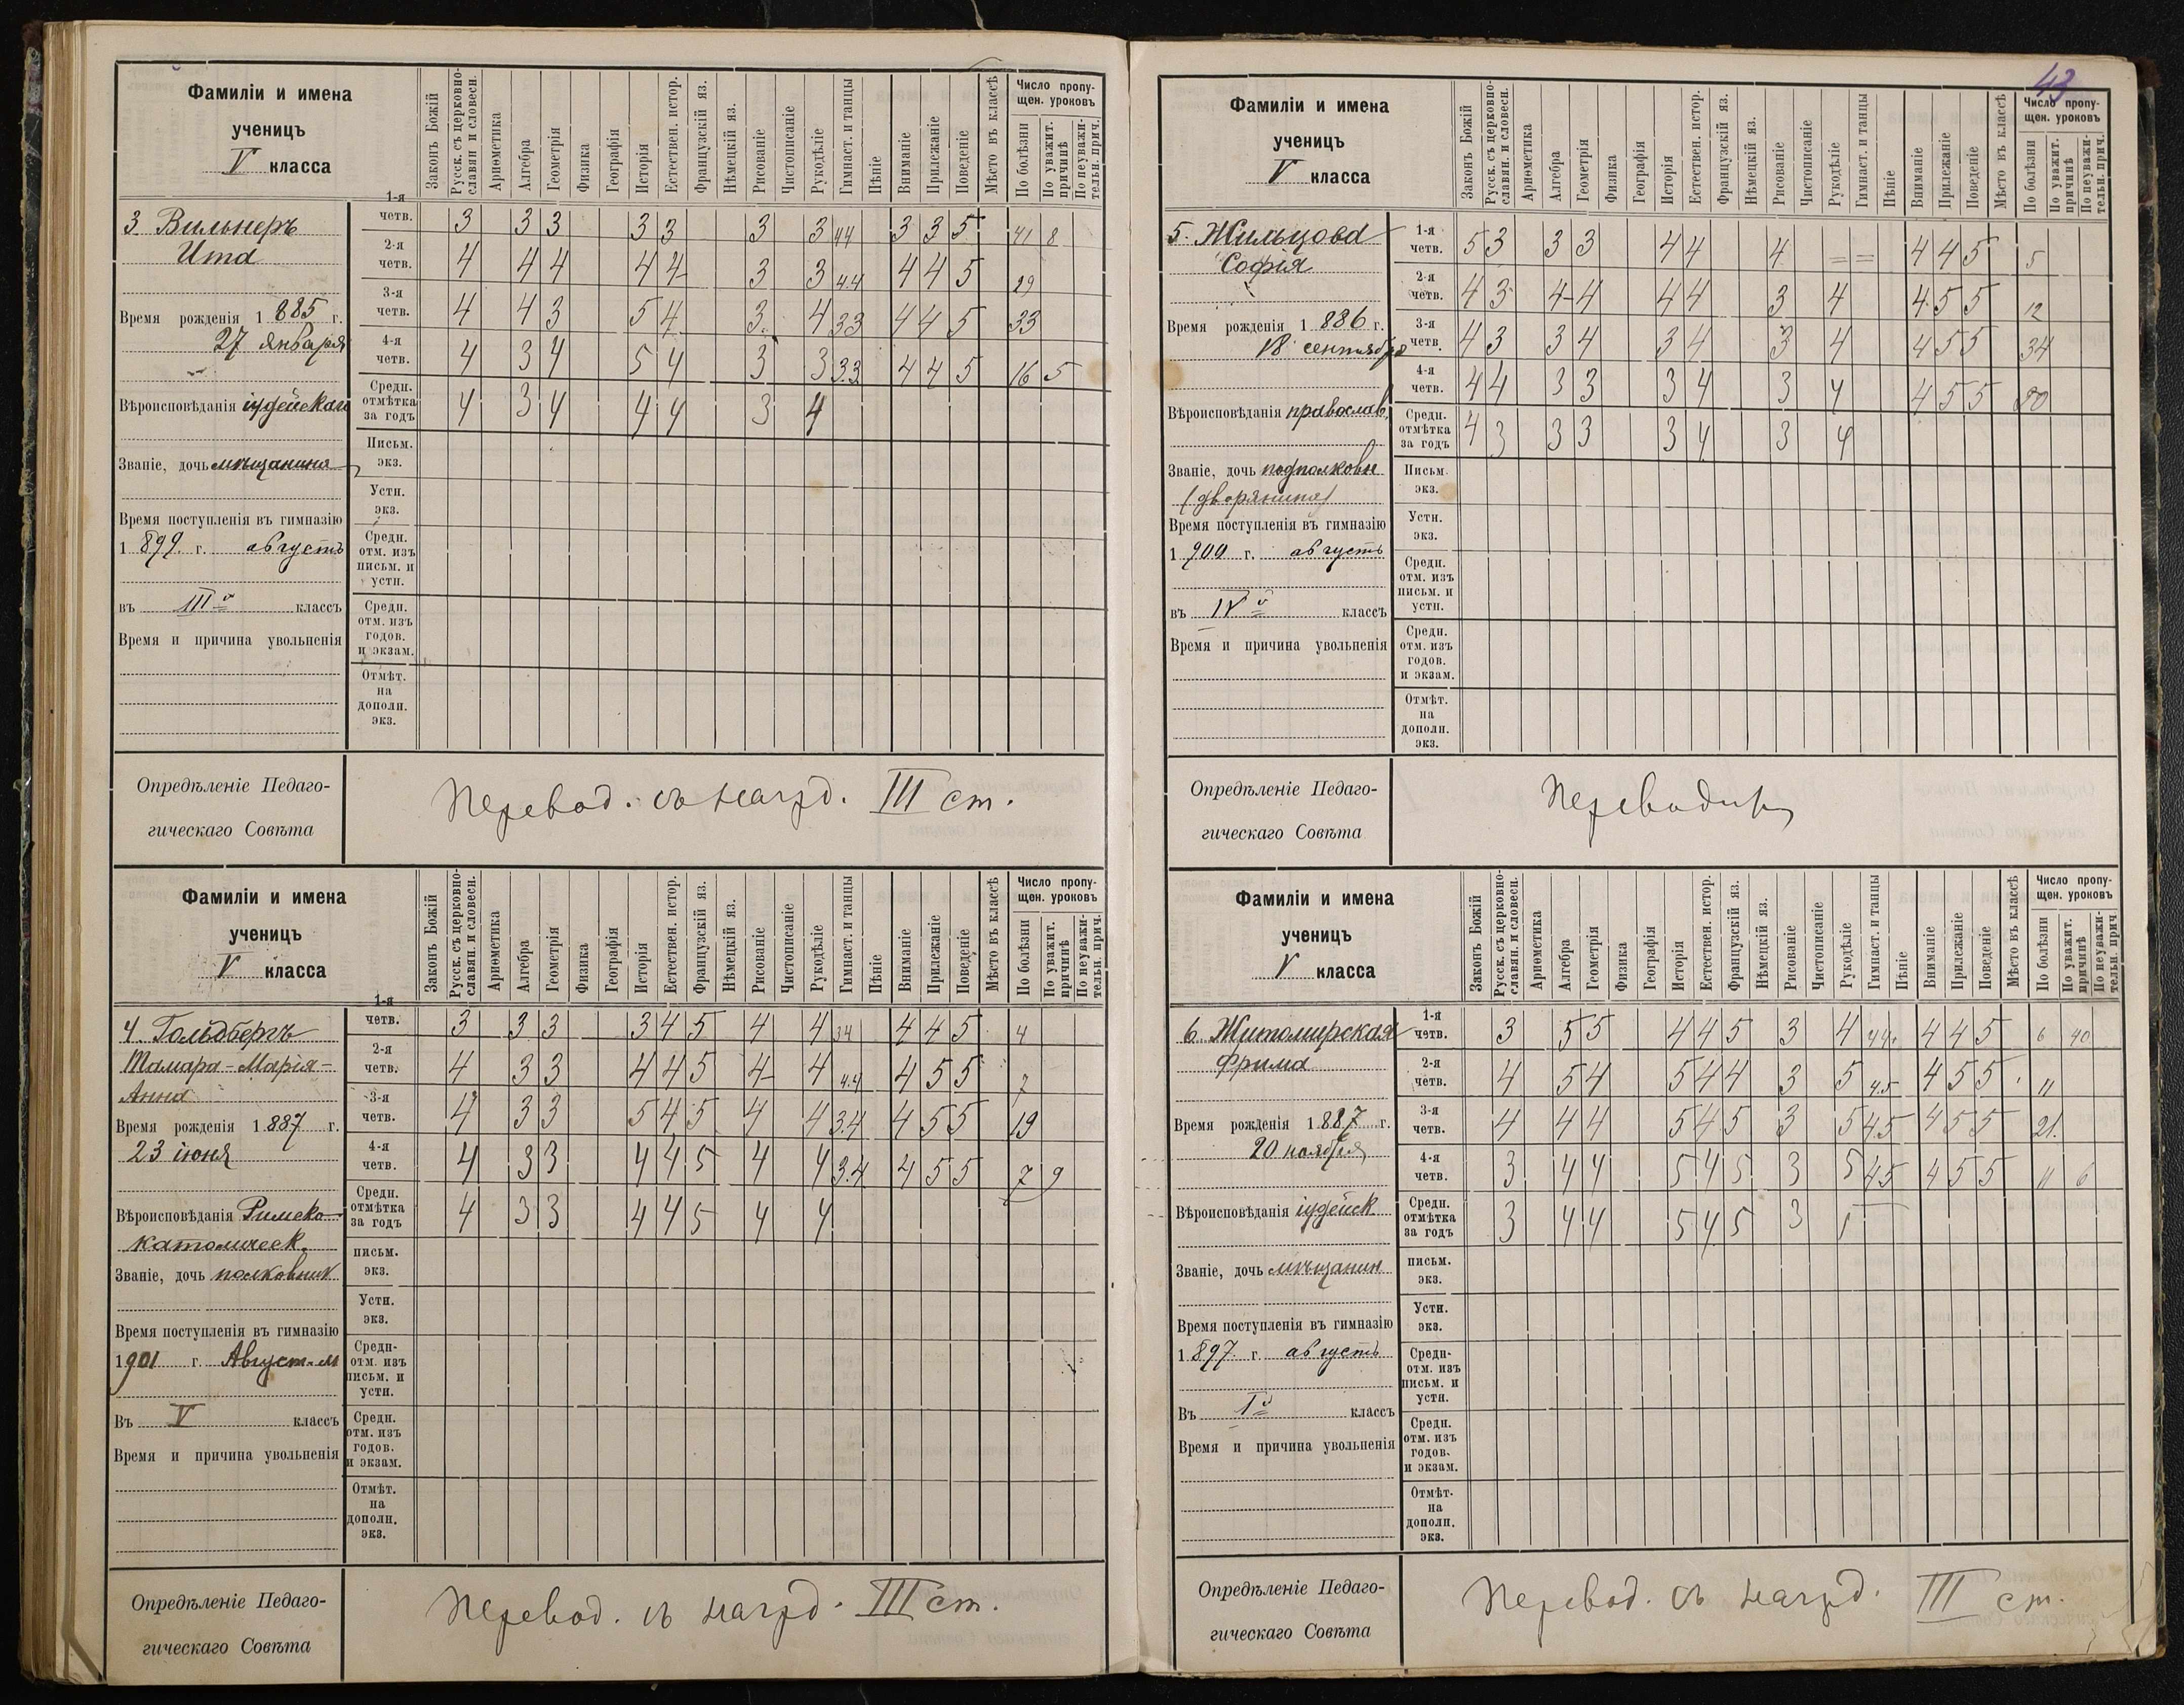 Фамиліи и имена
ученицъ
V класса
Законъ Божій
Русск. съ церковно-славян. и словесн.
Ариѳметика
Алгебра
Геометрія
Физика
Географія
Исторія
Естествен. истор.
Французскій яз.
Нѣмецкій яз.
Рисованіе
Чистописаніе
Рукодѣліе
Гимнаст. и танцы
Пѣніе
Вниманіе
Прилежаніе
Поведеніе
Мѣсто въ классѣ
Число пропу-
щен. уроковъ
По болѣзни
По уважит. причинѣ
По неуважи-тельн. прич.
3. Вильнеръ
Ита
Время рожденія 1 885 г.
27 января
Вѣроисповѣданія іудейскаго
Званіе, дочь мѣщанина
Время поступленія въ гимназію
1 899. г. августъ
въ III й классъ
Время и причина увольненія
1-я четв. 3 3 3 3 3 3 3 4 4 3 3 5 41 8
2-я четв. 4 4 4 4 4 3 3 4.4 4 4 5 29
3-я четв. 4 4 3 5 4 3. 4 3 3 4 4 5 33
4-я четв. 4 3 4 5 4 3 3 3.3 4 4 5 16 5
Средн. отмѣтка за годъ 4 3 4 4 4 3 4
Письм. экз.
Устн. экз.
Средн. отм. изъ письм. и устн.
Средн. отм. изъ годов. и экзам.
Отмѣт. на дополн. экз.
Опредѣленіе Педаго-
гическаго Совѣта
Перевод. съ нагрд. III ст.
Фамиліи и имена
ученицъ
V класса
Законъ Божій
Русск. съ церковно-славян. и словесн.
Ариѳметика
Алгебра
Геометрія
Физика
Географія
Исторія
Естествен. истор.
Французскій яз.
Нѣмецкій яз.
Рисованіе
Чистописаніе
Рукодѣліе
Гимнаст. и танцы
Пѣніе
Вниманіе
Прилежаніе
Поведеніе
Мѣсто въ классѣ
Число пропу-
щен. уроковъ
По болѣзни
По уважит. причинѣ
По неуважи-тельн. прич.
4. Гольдбергъ
Тамара-Марія-
Анна
Время рожденія 1 887 г.
23 іюня
Вѣроисповѣданія Римско-
католическ.
Званіе, дочь полковник
Время поступленія въ гимназію
1901 г. Август-м
Въ V классъ
Время и причина увольненія
1-я четв. 3 3 3 3 4 5 4 4 3 4 4 4 5 4
2-я четв. 4 3 3 4 4 5 4 4 4.4 4 5 5 7
3-я четв. 4 3 3 5 4 5 4 4 3.4 4 5 5 19
4-я четв. 4 3 3 4 4 5 4 4 3.4 4 5 5 7 9
Средн. отмѣтка за годъ 4 3 3 4 4 5 4 4
письм. экз.
Устн. экз.
Средн- отм. изъ письм. и устн.
Средн. отм. изъ годов. и экзам.
Отмѣт. на дополн. экз.
Опредѣленіе Педаго-
гическаго Совѣта
Перевод. съ нагрд. III ст.
43
Фамиліи и имена
ученицъ
V класса
Законъ Божій
Русск. съ церковно-славян. и словесн.
Ариѳметика
Алгебра
Геометрія
Физика
Географія
Исторія
Естествен. истор.
Французскій яз.
Нѣмецкій яз.
Рисованіе
Чистописаніе
Рукодѣліе
Гимнаст. и танцы
Пѣніе
Вниманіе
Прилежаніе
Поведеніе
Мѣсто въ классѣ
Число пропу-
щен. уроковъ
По болѣзни
По уважит. причинѣ
По неуважи-тельн. прич.
5. Жильцова
Софія
Время рожденія 1 886 г.
18 сентября
Вѣроисповѣданія православ.
Званіе, дочь подполковн
(дворянина)
Время поступленія въ гимназію
1 900 г. августъ
въ IV й классъ
Время и причина увольненія
1-я четв. 5 3 3 3 4 4 4 = = 4 4 5 5
2-я четв. 4 3 4 4 4 4 3 4 4 5 5 12
3-я четв. 4 3 3 4 3 4 3 4 4 5 5 34
4-я четв. 4 4 3 3 3 4 3 4 4 5 5
Средн. отмѣтка за годъ 4 3 3 3 3 4 3 4
Письм. экз.
Устн. экз.
Средн. отм. изъ письм. и устн.
Средн. отм. изъ годов. и экзам.
Отмѣт. на дополн. экз.
Опредѣленіе Педаго-
гическаго Совѣта
Переводится
Фамиліи и имена
ученицъ
V класса
Законъ Божій
Русск. съ церковно-славян. и словесн.
Ариѳметика
Алгебра
Геометрія
Физика
Географія
Исторія
Естествен. истор.
Французскій яз.
Нѣмецкій яз.
Рисованіе
Чистописаніе
Рукодѣліе
Гимнаст. и танцы
Пѣніе
Вниманіе
Прилежаніе
Поведеніе
Мѣсто въ классѣ
Число пропу-
щен. уроковъ
По болѣзни
По уважит. причинѣ
По неуважи-тельн. прич
6. Житомирская
Фрима
Время рожденія 1 887 г.
20 ноября
Вѣроисповѣданія іудейск
Званіе, дочь мѣщанин
Время поступленія въ гимназію
1 897. г. августъ
Въ I й классъ
Время и причина увольненія
1-я четв. 3 5 5 4 4 5 3 4 4 4. 4 4 5 6 40
2-я четв. 4 5 4 5 4 4 3 5 4.5 4 5 5 11
3-я четв. 4 4 4 5 4 5 3 5 4.5 4 5 5 21.
4-я четв. 3 4 4 5 4 5 3 5 4.5 4 5 5 11 6
Средн. отмѣтка за годъ 3 4 4 5 4 5 3 5
письм. экз.
Устн. экз.
Средн- отм. изъ письм. и устн.
Средн. отм. изъ годов. и экзам.
Отмѣт. на дополн. экз.
Опредѣленіе Педаго-
гическаго Совѣта
Перевод. съ нагрд. III ст.